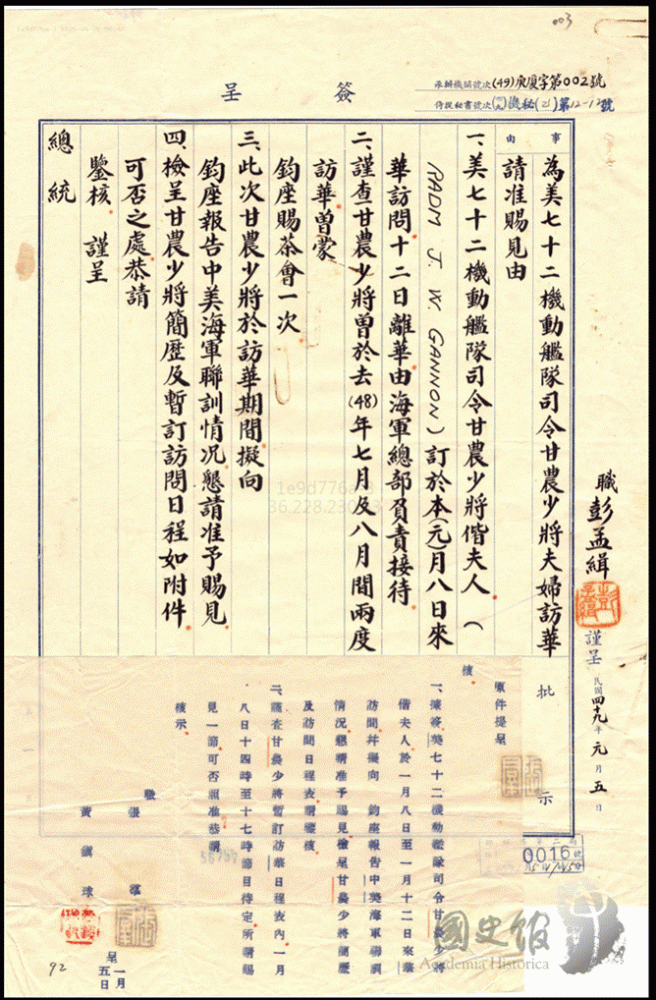 003
簽呈
承辦機關號次(49)庚價字第002號
事由
為美七十二機動艦隊司令甘農少將夫婦訪華
請准賜見由
一、美七十二機動艦隊司令甘農少將偕夫人(
RADM J. W. GANNON)訂於本(元)月八日來
華訪問十二日離華由海軍總部負責接待
二、謹查甘農少將曾於去(48)年七月及八月間兩度
訪華曾蒙
鈞座賜茶會一次
三、此次甘農少將於訪華期間擬向
鈞座報告中美海軍聯訓情況懇請准予賜見
四、檢呈甘農少將簡歷及暫訂訪問日程如附件
可否之處恭請
鑒核 謹呈
總統
職彭孟緝
謹呈 民國四十九年元月五日
批示
0016
原件提呈
核。
一、據簽美七十二機動艦隊司令甘農少將
偕夫人於一月八日至一月十二日來華
訪問并擬向 鈞座報告中美海軍聯訓
情況懇請准予賜見檢呈甘農少將簡歷
及訪問日程表請鑒核。
二、經查甘農少將暫訂訪華日程表內,一月
八日十四時至十七時節目待定所請賜
見一節可否照准恭請
核示。
職張羣
黃鎮球
呈 一月五日
92
國史館
Academia Historica